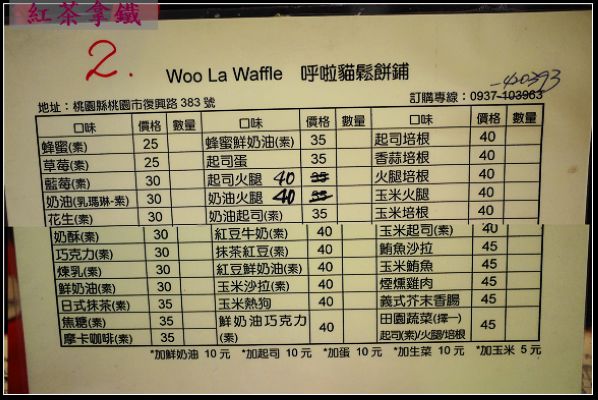 紅茶拿鐵
2.
Woo La Waffle 呼啦貓鬆餅鋪
-40393
地址：桃園縣桃園市復興路 383 號 訂購專線：0937-103963
口味 價格 數量 口味 價格 數量 口味 價格 數量
蜂蜜(素) 25 蜂蜜鮮奶油(素) 35 起司培根 40
草莓(素) 25 起司蛋 35 香蒜培根 40
藍莓(素) 30 起司火腿 40 35 火腿培根 40
奶油(乳瑪琳-素) 30 奶油火腿 40 35 玉米火腿 40
花生(素) 30 奶油起司(素) 35 玉米培根 40
奶酥(素) 30 紅豆牛奶(素) 40 玉米起司(素) 40
巧克力(素) 30 抹茶紅豆(素) 40 鮪魚沙拉 45
煉乳(素) 30 紅豆鮮奶油(素) 40 玉米鮪魚 45
鮮奶油(素) 30 玉米沙拉(素) 40 煙燻雞肉 45
日式抹茶(素) 35 玉米熱狗 40 義式芥末香腸 45
焦糖(素) 35 鮮奶油巧克力(素) 40 田園蔬菜(擇一)起司(素)/火腿/培根 45
摩卡咖啡(素) 35
*加鮮奶油 10 元 *加起司 10 元 *加蛋 10 元 *加生菜 10 元 *加玉米 5 元